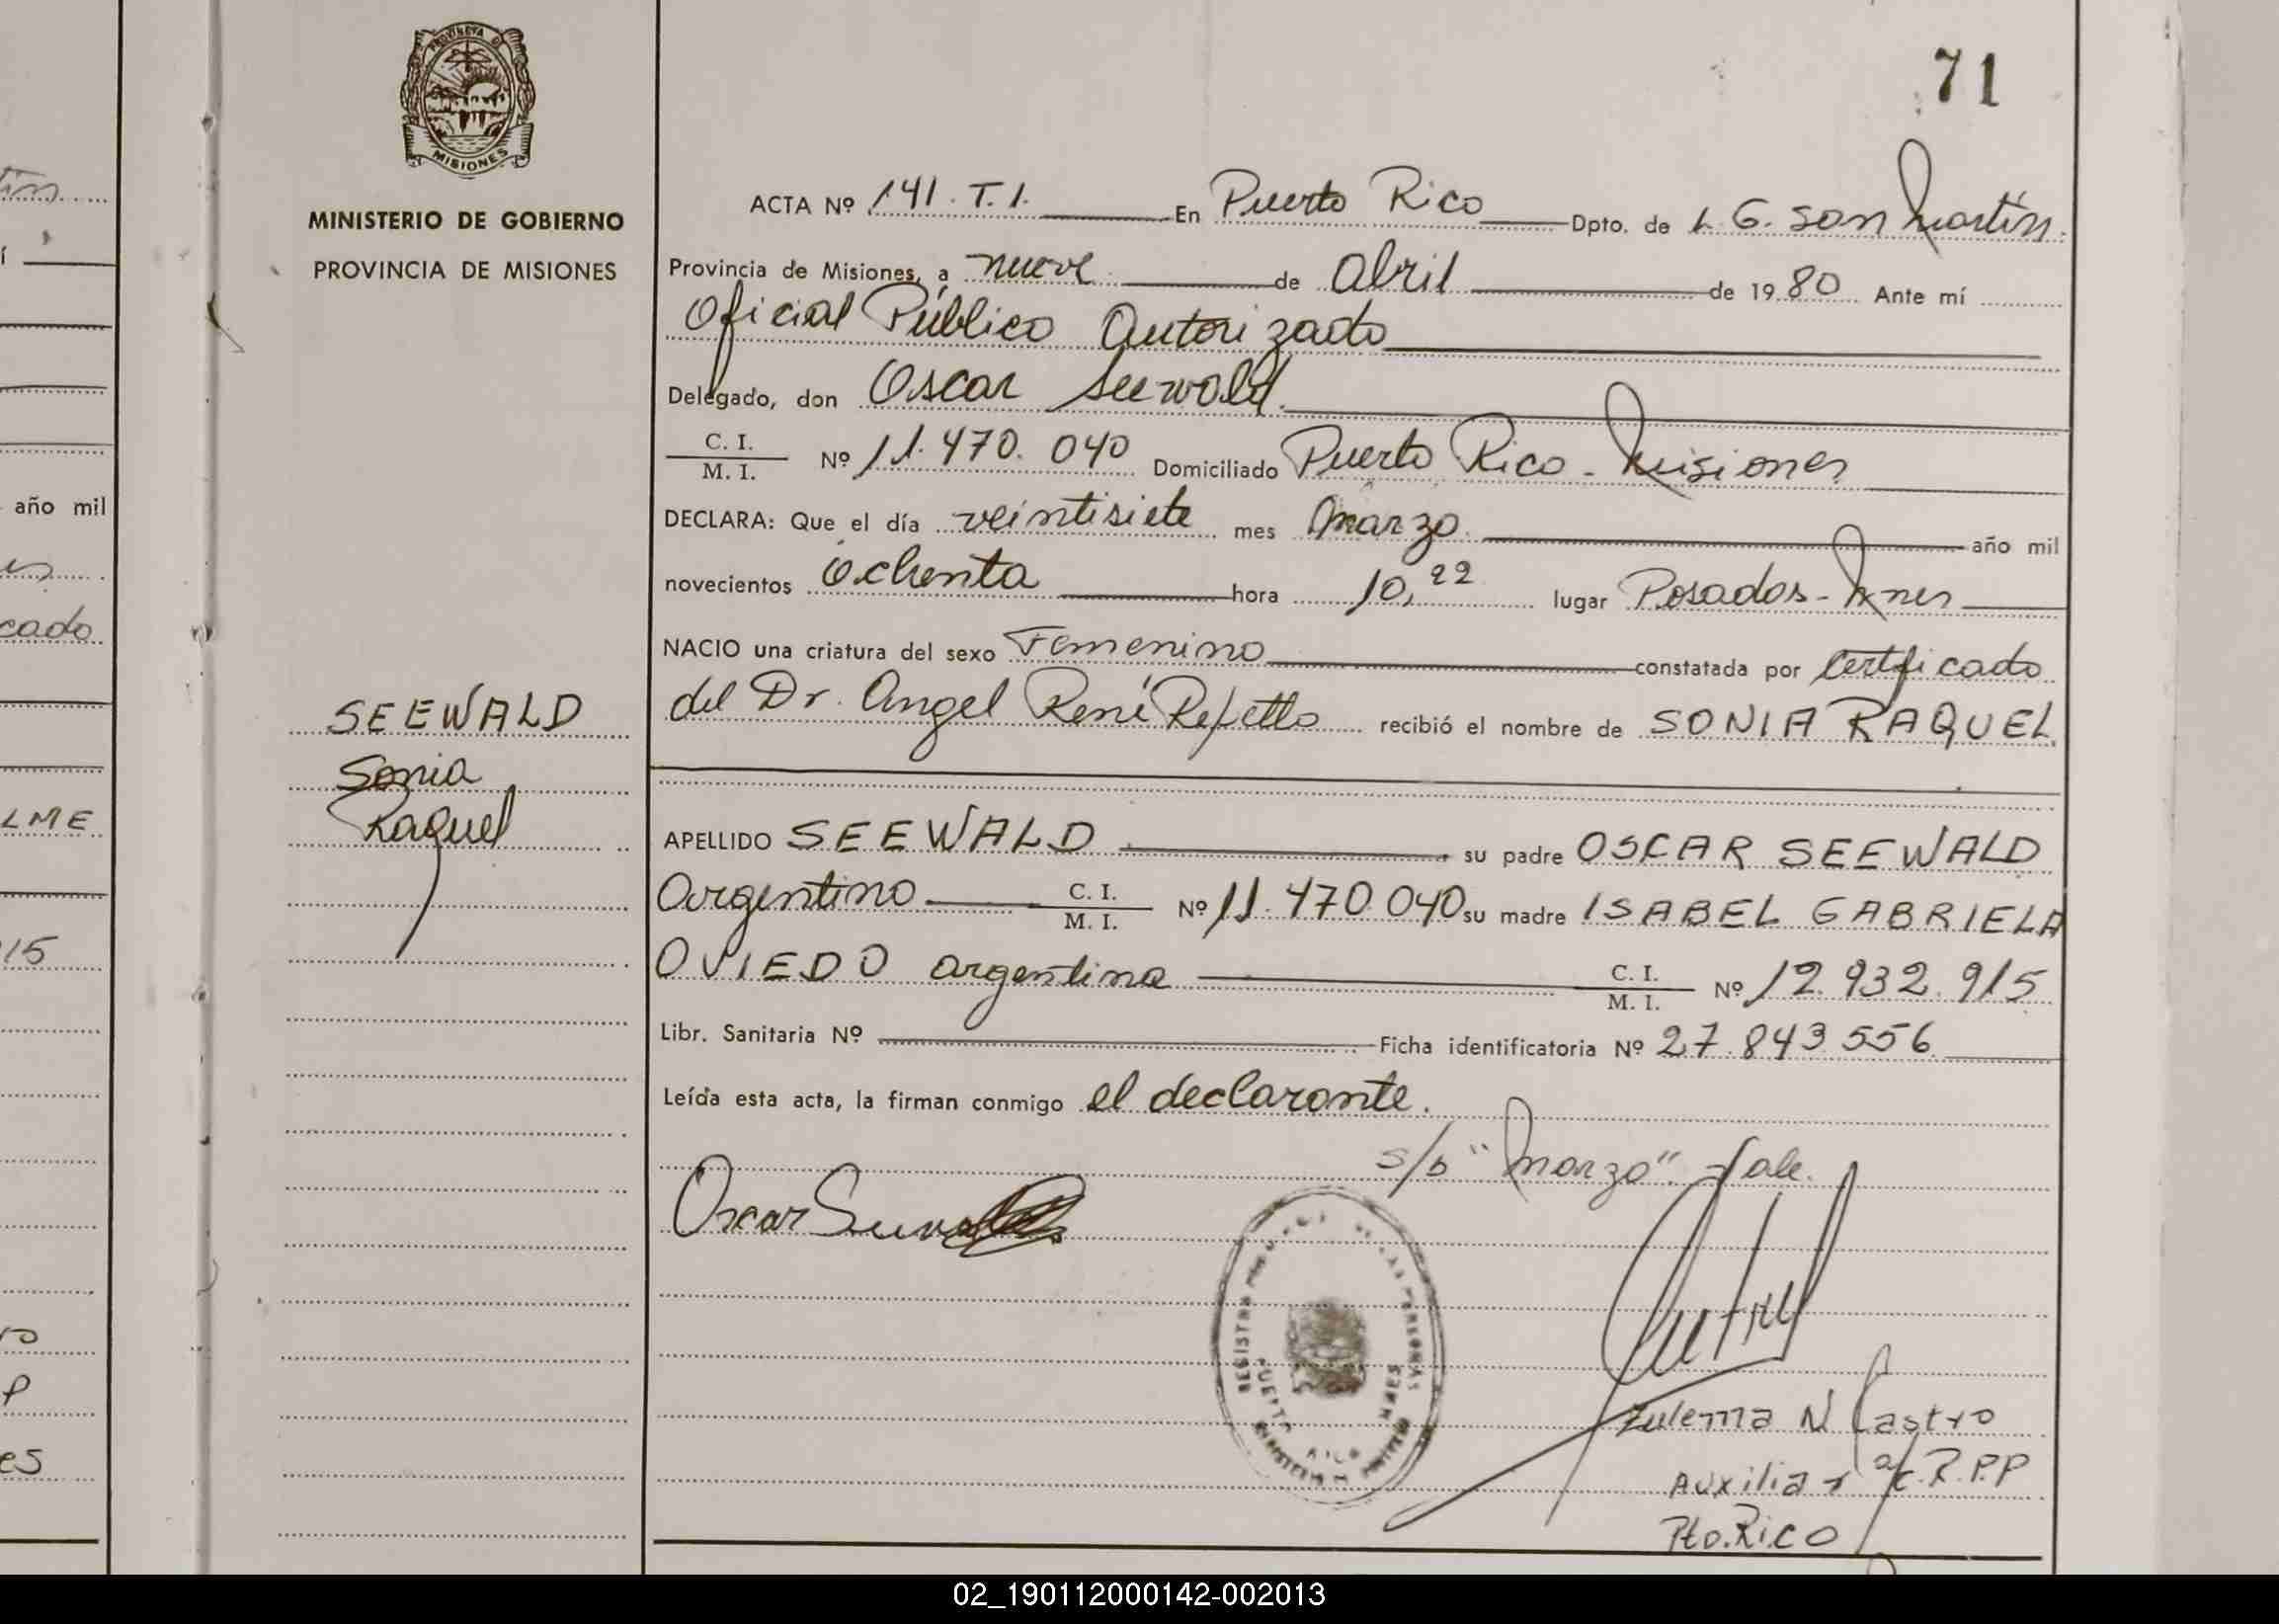 71
PROVINCIA DE
MISIONES
MINISTERIO DE GOBIERNO
PROVINCIA DE MISIONES
ACTA Nº 141. T. 1. En Puerto Rico Dpto. de L. G. San Martín.
Provincia de Misiones, a nueve de Abril de 1980 Ante mí
Oficial Público Autorizado
Delegado, don Oscar Seewald.
C. I.
M. I. Nº 11.470.040 Domiciliado Puerto Rico - Misiones
DECLARA: Que el día veintisiete mes Marzo año mil
novecientos ochenta hora 10,22 lugar Posadas - Mnes
NACIO una criatura del sexo Femenino constatada por Certificado
del Dr. Angel René Repetto recibió el nombre de SONIA RAQUEL
SEEWALD
Sonia
Raquel
APELLIDO SEEWALD su padre OSCAR SEEWALD
Argentino C. I.
M. I. Nº 11.470.040 su madre ISABEL GABRIELA
OVIEDO argentina C. I.
M. I. Nº 12.932.915
Libr. Sanitaria Nº Ficha identificatoria Nº 27.843.556
Leída esta acta, la firman conmigo el declarante.
s/b "Marzo". Vale.
Oscar Seewald
REGISTRO DE LAS PERSONAS
PUERTO RICO MNES
Zulema N Castro
Auxiliar a/c. R.P.P
Pto. Rico
tín
í
año mil
es
cado
LME
15
ro
P
es
02_190112000142-002013